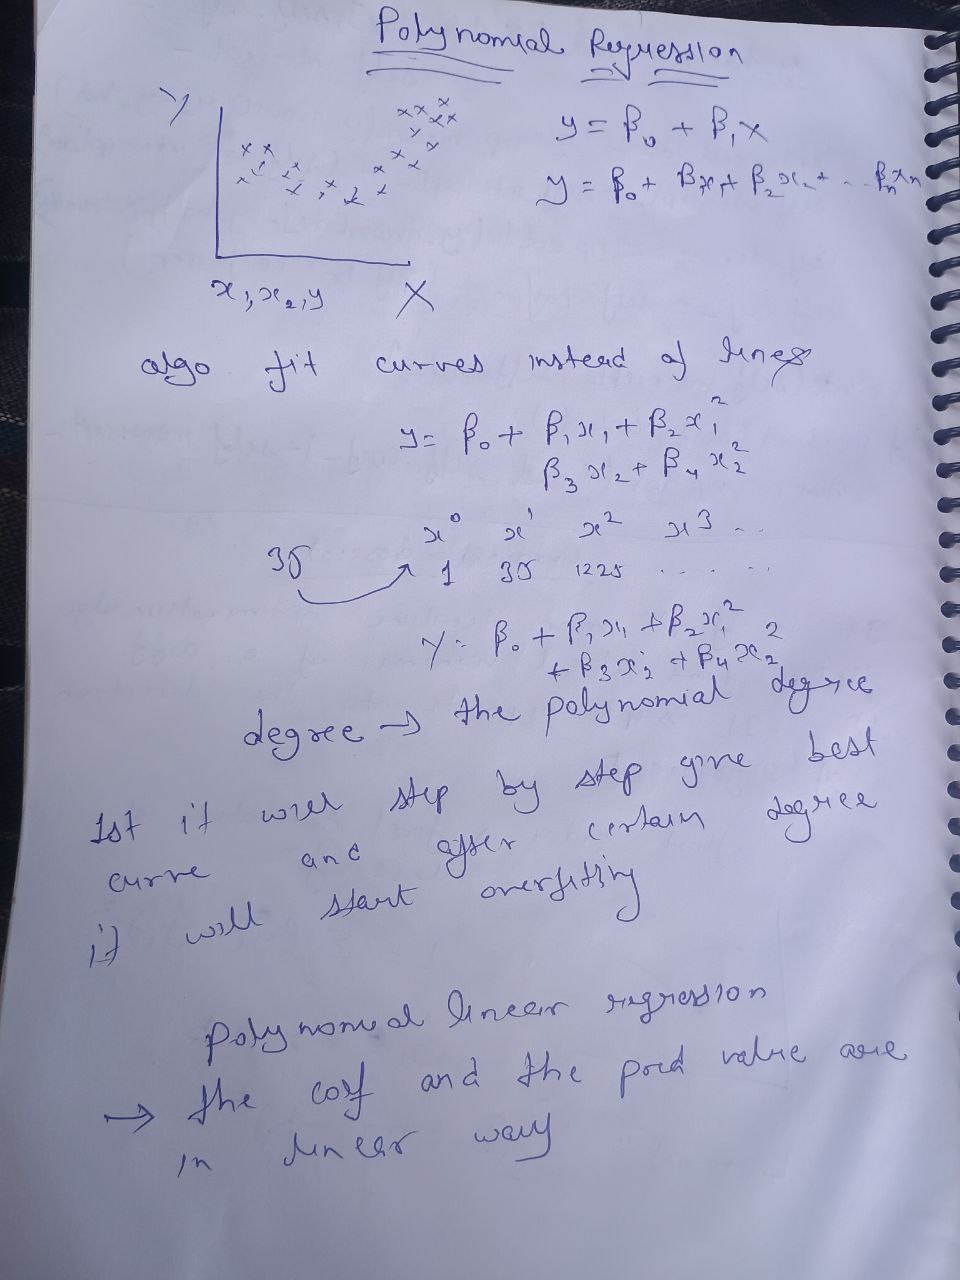 Polynomial Regression
Y
y = β₀ + β₁x
y = β₀ + β₁x₁ + β₂x₂ + .. βₙxₙ
x₁, x₂, y X
algo fit curves instead of lines
y = β₀ + β₁x₁ + β₂x₁²
β₃x₂ + β₄x₂²
x⁰ x¹ x² x³ ..
35 1 35 1225 . . . . .
Y = β₀ + β₁x₁ + β₂x₁²
+ β₃x₂ + β₄x₂²
degree → the polynomial degree
1st it will step by step give best
curve and after certain degree
it will start overfitting
polynomial linear regression
→ the coef and the pred value are
in linear way